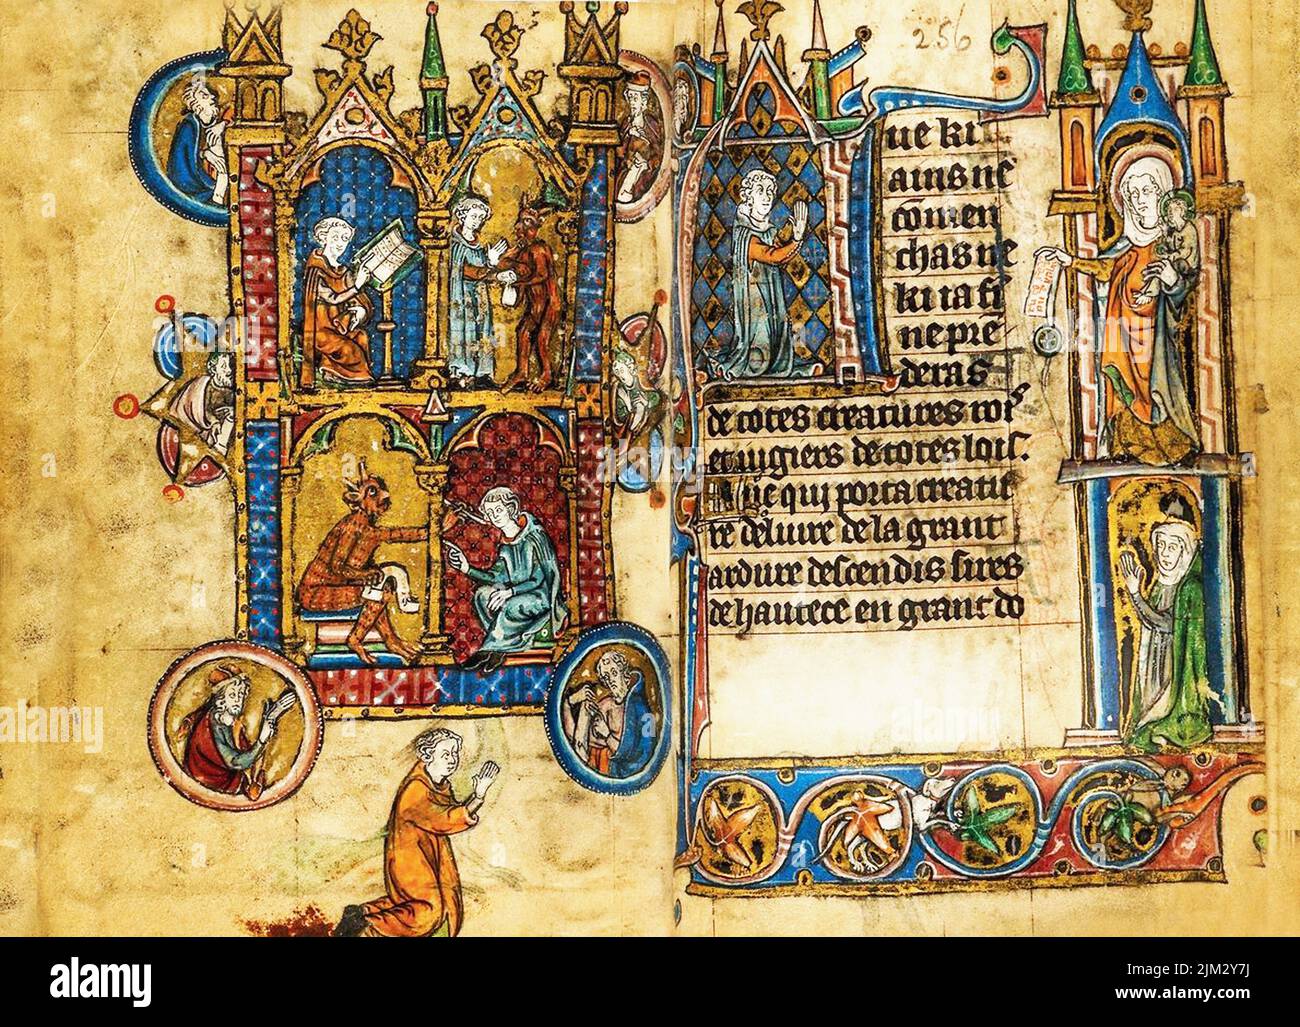 256
ue ki
ains ne
cōmen
chas ne
ki ia fi
ne pre
deras
de totes creatures
et iugiers de totes lois.
que qui porta
re deluire de la grant
ardure descendis sures
de hautece en grant do
alamy
Image ID: 2JM2Y7J
www.alamy.com